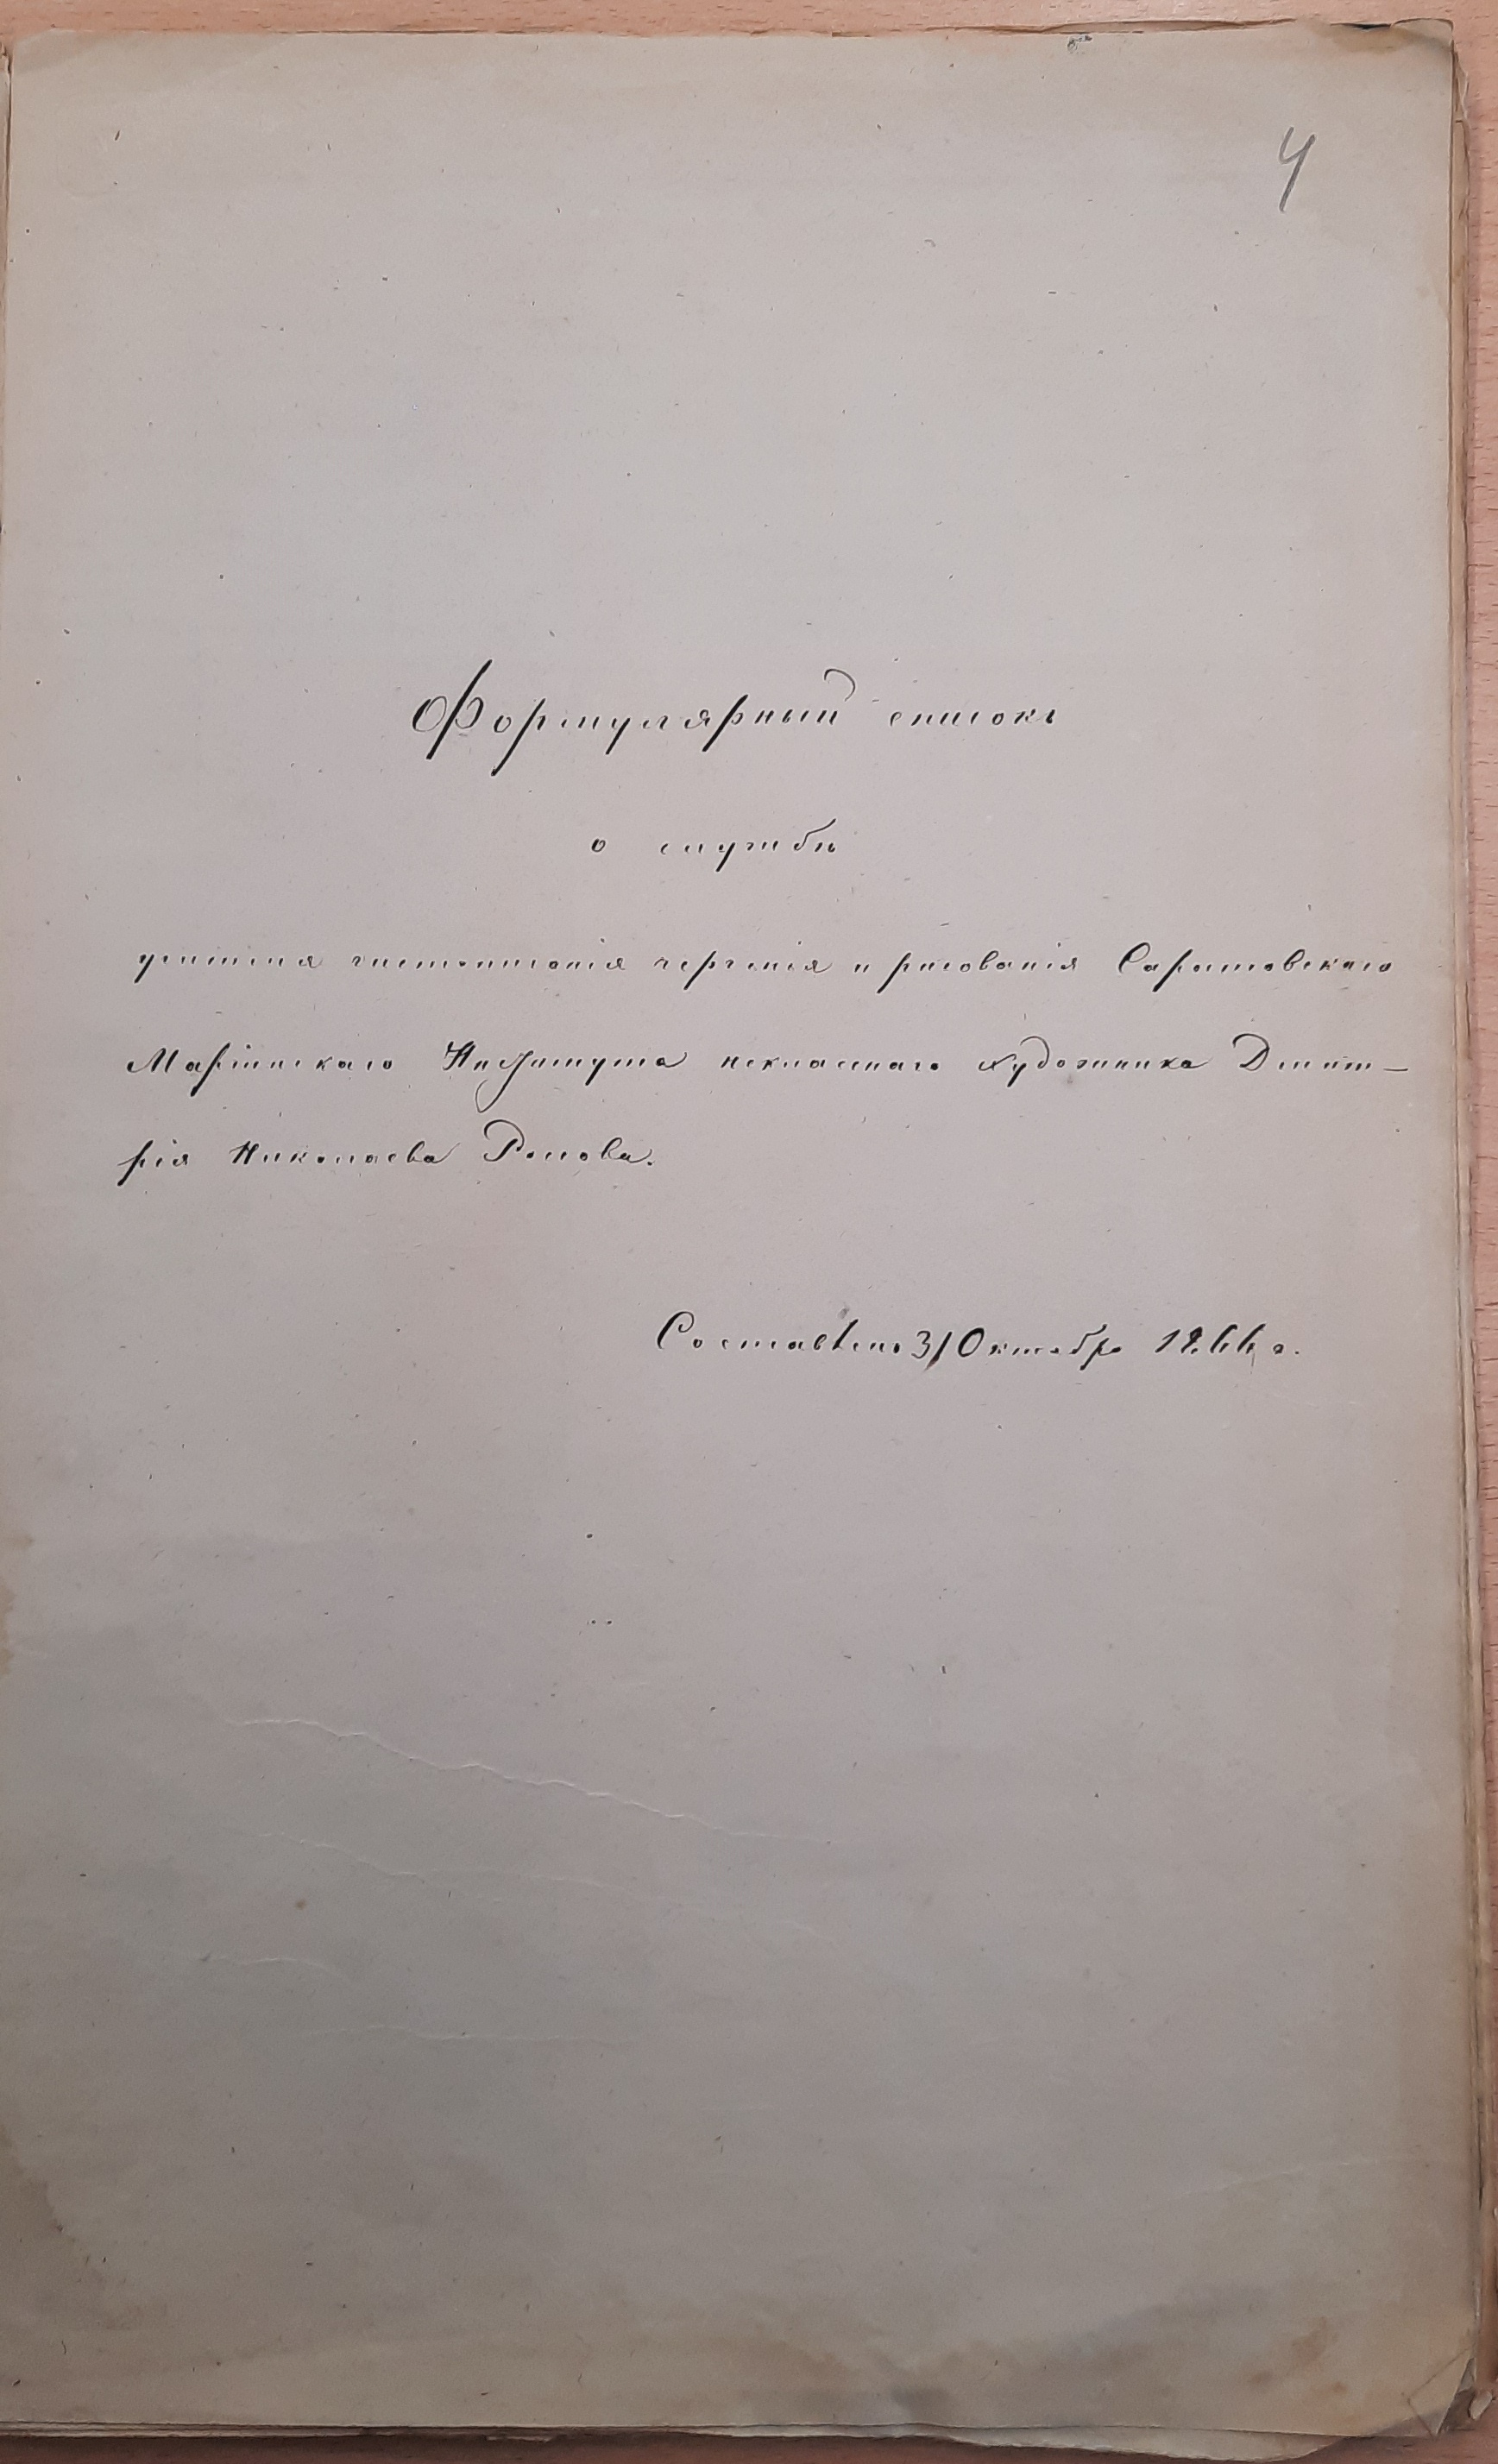 4
Формулярный списокъ
о службѣ
учителя чистописанія черченія и рисованія Саратовскаго
Маріинскаго Института некласснаго художника Дмит-
рія Николаева
Составленъ 31 Октября 1866 г.